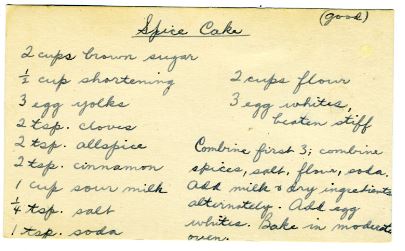 Spice Cake
(good)
2 cups brown sugar
½ cup shortening
3 egg yolks
2 tsp. cloves
2 tsp. allspice
2 tsp. cinnamon
1 cup sour milk
¼ tsp. salt
1 tsp. soda
2 cups flour
3 egg whites,
beaten stiff
Combine first 3; combine
spices, salt, flour, soda.
Add milk & dry ingredients
alternately. Add egg
whites. Bake in moderate
oven.